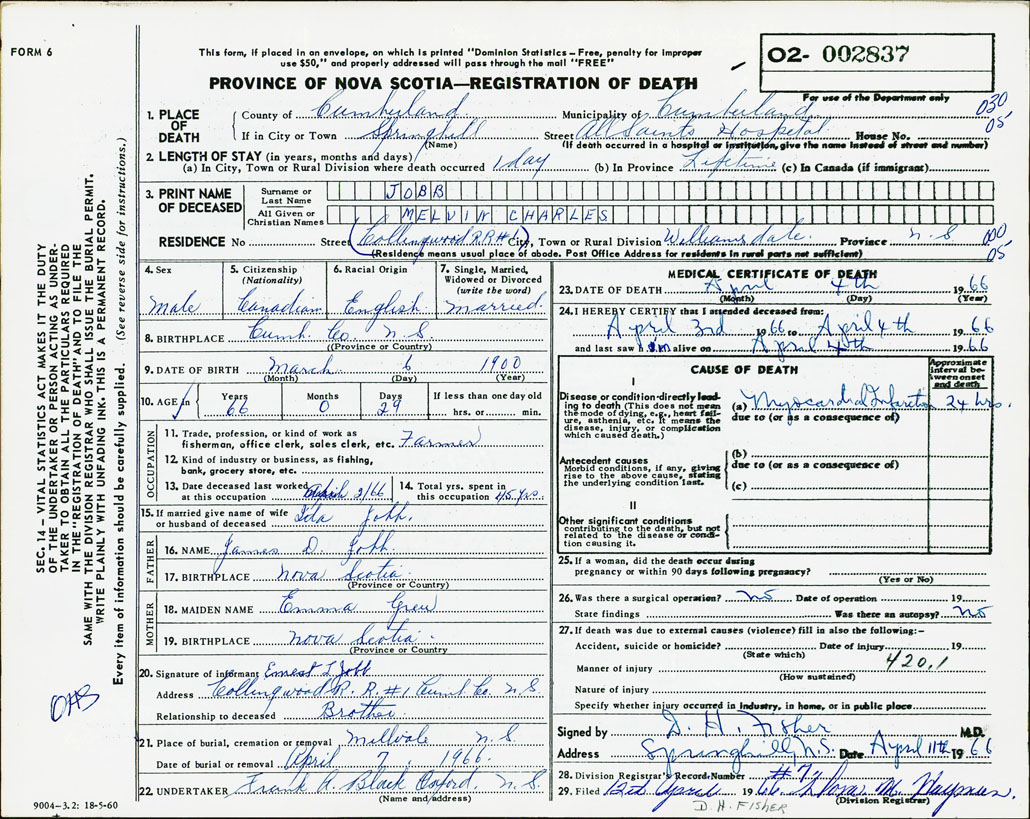 FORM 6
This form, if placed in an envelope, on which is printed "Dominion Statistics – Free, penalty for improper
use $50," and properly addressed will pass through the mail "FREE"
PROVINCE OF NOVA SCOTIA—REGISTRATION OF DEATH
02- 002837
For use of the Department only
030
05
1. PLACE OF DEATH
County of Cumberland Municipality of Cumberland
If in City or Town Springhill Street All Saints Hospital House No.
(Name) (If death occurred in a hospital or institution, give the name instead of street and number)
2. LENGTH OF STAY (in years, months and days)
(a) In City, Town or Rural Division where death occurred 1 day (b) In Province Lifetime (c) In Canada (if immigrant)
3. PRINT NAME OF DECEASED
Surname or Last Name JOBB
All Given or Christian Names MELVIN CHARLES
RESIDENCE No Street (Collingwood R.R#1) City, Town or Rural Division Williamsdale Province N.S
(Residence means usual place of abode. Post Office Address for residents in rural parts not sufficient)
000
05
4. Sex
Male
5. Citizenship
(Nationality)
Canadian
6. Racial Origin
English
7. Single, Married,
Widowed or Divorced
(write the word)
Married
8. BIRTHPLACE Cumb Co. N.S.
(Province or Country)
9. DATE OF BIRTH March 6 1900
(Month) (Day) (Year)
10. AGE in
Years Months Days If less than one day old
66 0 29 hrs. or min.
OCCUPATION
11. Trade, profession, or kind of work as
fisherman, office clerk, sales clerk, etc. Farmer
12. Kind of industry or business, as fishing,
bank, grocery store, etc.
13. Date deceased last worked
at this occupation April 2/66
14. Total yrs. spent in
this occupation 45 yrs.
15. If married give name of wife
or husband of deceased Jobb
FATHER
16. NAME James D. Jobb
17. BIRTHPLACE Nova Scotia
(Province or Country)
MOTHER
18. MAIDEN NAME Emma
19. BIRTHPLACE Nova Scotia
(Province or Country
20. Signature of informant Ernest L Jobb
Address Collingwood R. R. #1 Cumb Co. N.S.
Relationship to deceased Brother
21. Place of burial, cremation or removal Millvale N.S.
Date of burial or removal April 7, 1966.
22. UNDERTAKER Frank A. Black Oxford, N.S.
(Name and address)
MEDICAL CERTIFICATE OF DEATH
23. DATE OF DEATH April 4th 1966
(Month) (Day) (Year)
24. I HEREBY CERTIFY that I attended deceased from:
April 3rd 1966 to April 4th 1966
and last saw him alive on April 4th 1966
CAUSE OF DEATH
Approximate interval between onset and death
I
Disease or condition directly leading to death (This does not mean
the mode of dying, e.g., heart failure, asthenia, etc. It means the
disease, injury, or complication
which caused death.)
(a) Myocardial Infarction 24 hrs.
due to (or as a consequence of)
Antecedent causes
Morbid conditions, if any, giving
rise to the above cause, stating
the underlying condition last.
(b)
due to (or as a consequence of)
(c)
II
Other significant conditions
contributing to the death, but not
related to the disease or condition causing it.
25. If a woman, did the death occur during
pregnancy or within 90 days following pregnancy?
(Yes or No)
26. Was there a surgical operation? No Date of operation 19
State findings Was there an autopsy? No
27. If death was due to external causes (violence) fill in also the following:–
Accident, suicide or homicide? Date of injury 19
(State which)
420.1
Manner of injury
(How sustained)
Nature of injury
Specify whether injury occurred in industry, in home, or in public place
Signed by D. H. Fisher M.D.
Address Springhill, N.S. Date April 11th 1966
28. Division Registrar's Record Number
29. Filed 12th April 1966
(Division Registrar)
D. H. FISHER
SEC. 14 – VITAL STATISTICS ACT MAKES IT THE DUTY
OF THE UNDERTAKER OR PERSON ACTING AS UNDERTAKER TO OBTAIN ALL THE PARTICULARS REQUIRED
IN THE "REGISTRATION OF DEATH" AND TO FILE THE
SAME WITH THE DIVISION REGISTRAR WHO SHALL ISSUE THE BURIAL PERMIT.
WRITE PLAINLY WITH UNFADING INK. THIS IS A PERMANENT RECORD.
Every item of information should be carefully supplied. (See reverse side for instructions.)
9004–3.2: 18-5-60